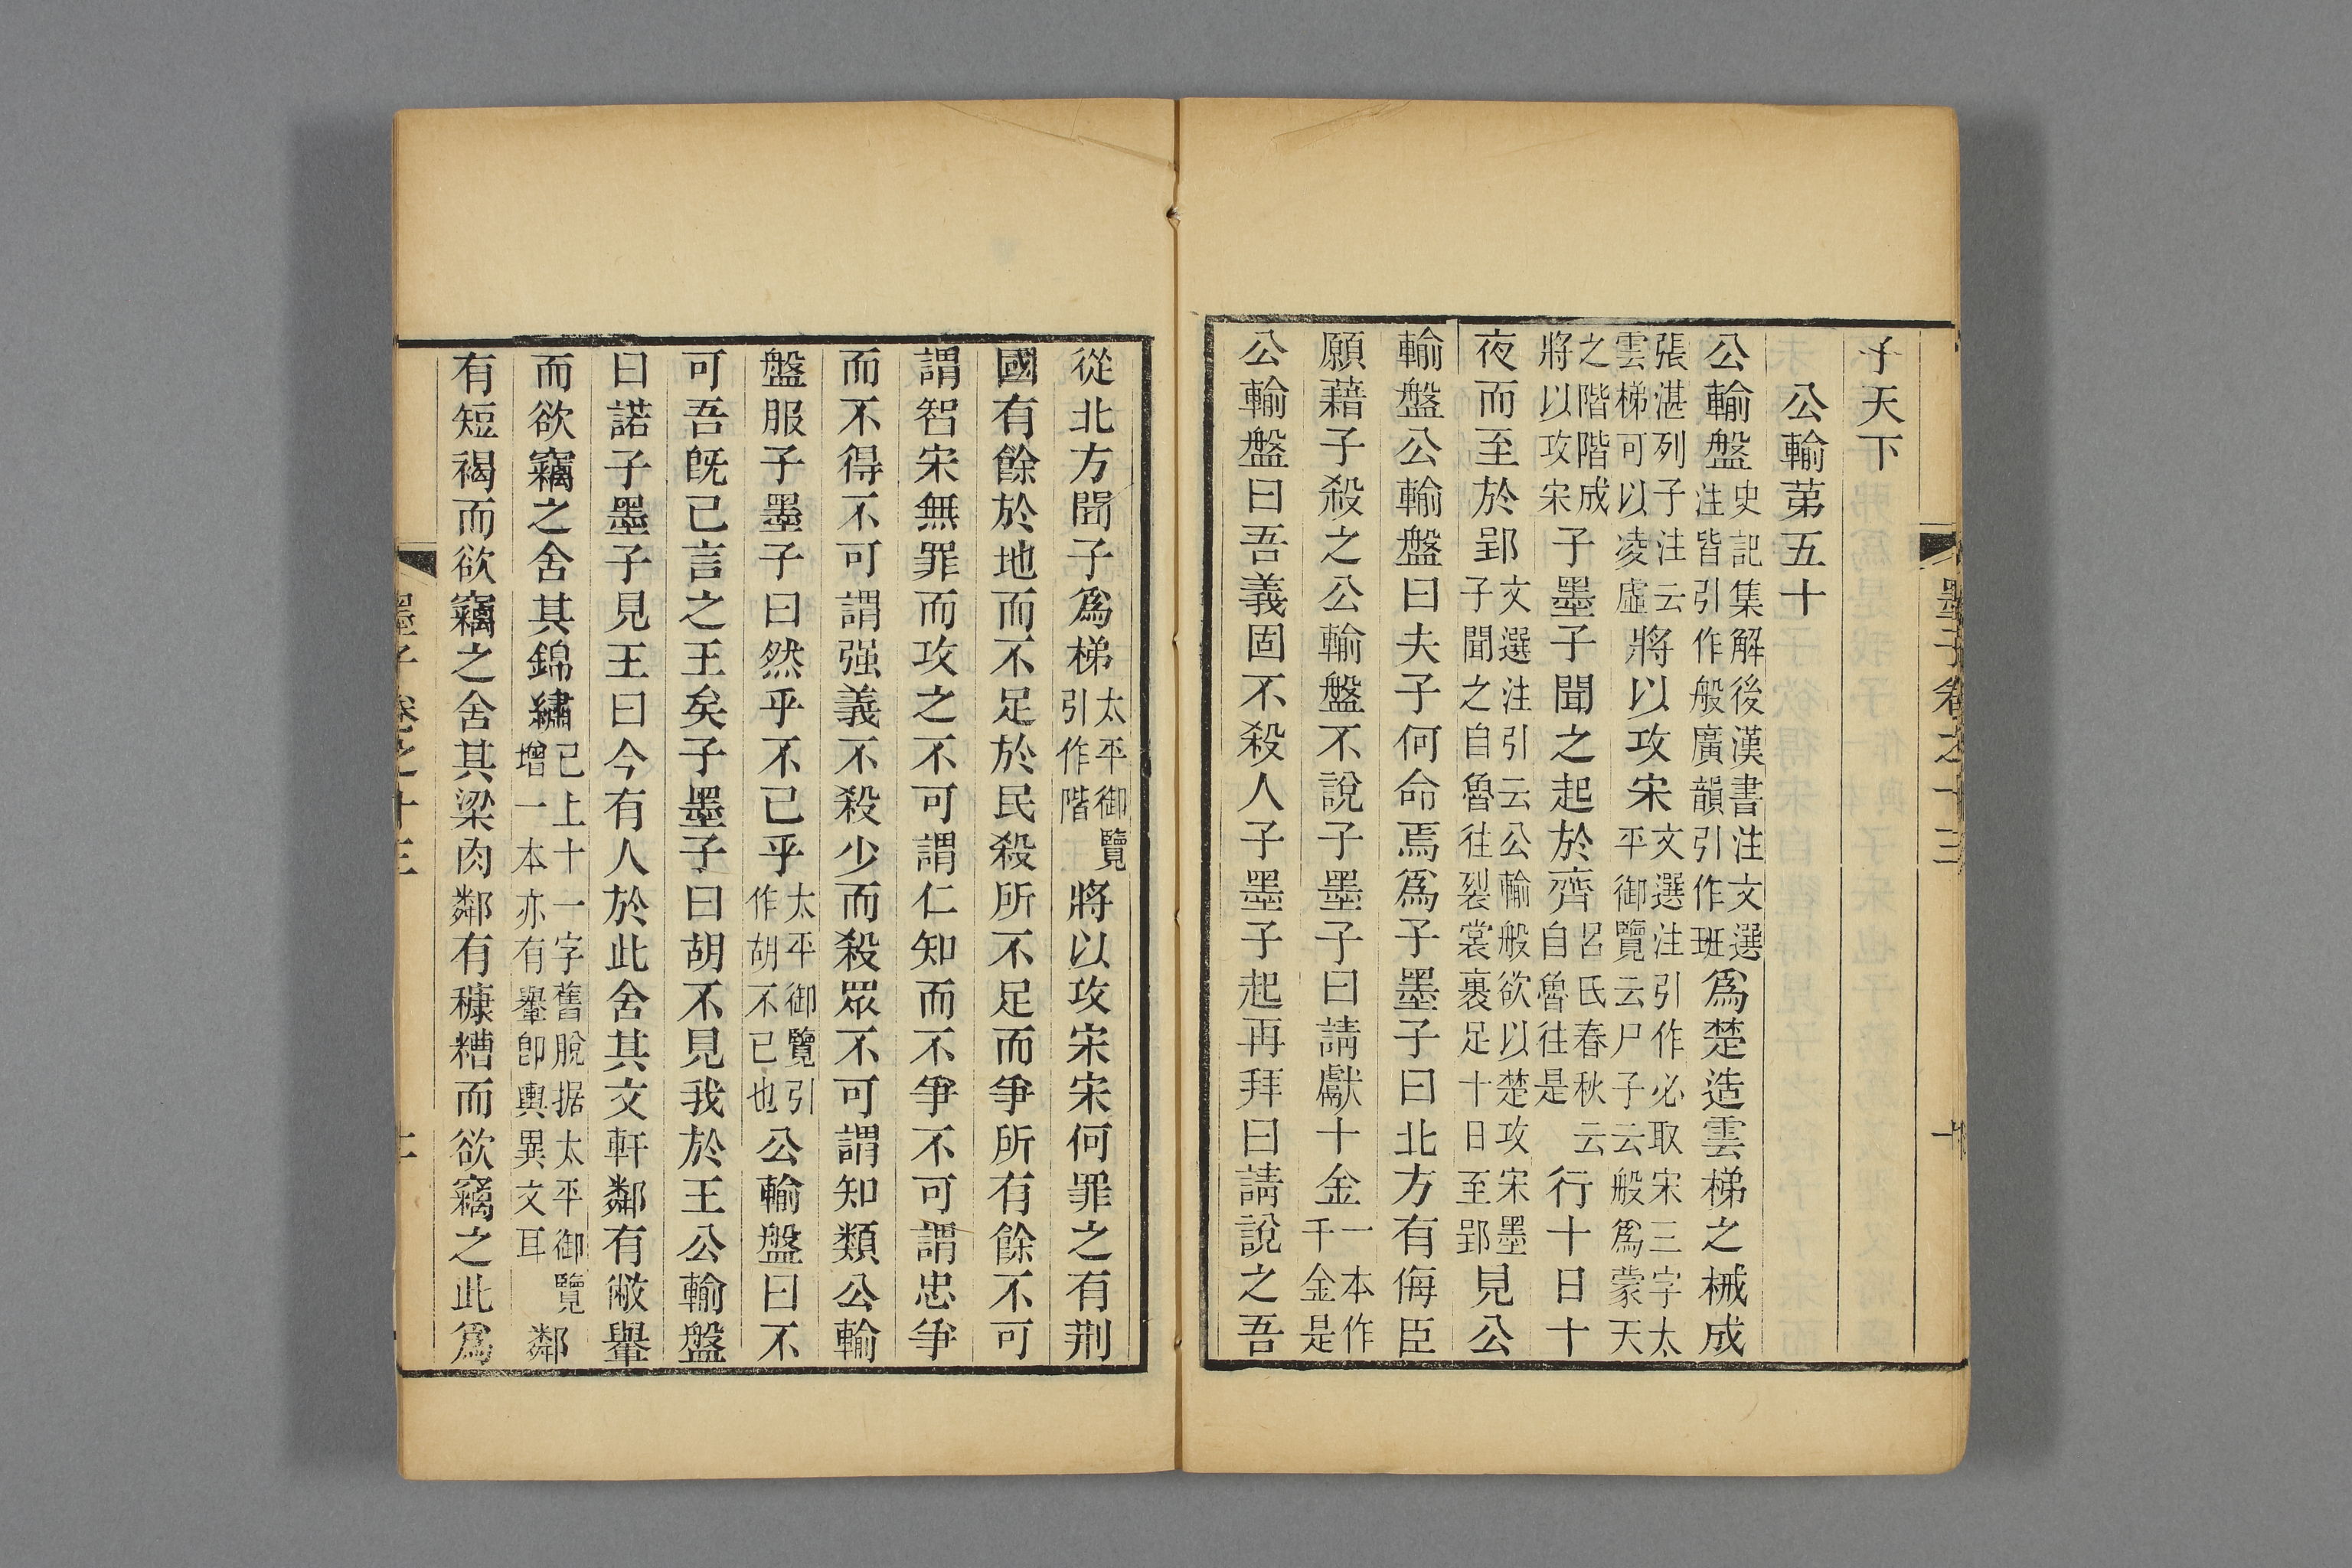 墨子卷之十三 十
子天下
公輸苐五十
公輸盤史記集解後漢書注文選注皆引作般廣韻引作班爲楚造雲梯之械成
張湛列子注云雲梯可以凌虛將以攻宋文選注引作必取宋三字太平御覽云尸子云般爲蒙天
之階階成將以攻宋子墨子聞之起於齊呂氏春秋云自魯往是行十日十
夜而至於郢文選注引云公輸般欲以楚攻宋墨子聞之自魯往裂裳裹足十日至郢見公
輸盤公輸盤曰夫子何命焉爲子墨子曰北方有侮臣
願藉子殺之公輸盤不說子墨子曰請獻十金一本作千金是
公輸盤曰吾義固不殺人子墨子起再拜曰請說之吾
從北方聞子爲梯太平御覽引作階將以攻宋宋何罪之有荆
國有餘於地而不足於民殺所不足而爭所有餘不可
謂智宋無罪而攻之不可謂仁知而不爭不可謂忠爭
而不得不可謂强義不殺少而殺眾不可謂知類公輸
盤服子墨子曰然乎不已乎太平御覽引作胡不已也公輸盤曰不
可吾旣已言之王矣子墨子曰胡不見我於王公輸盤
曰諾子墨子見王曰今有人於此舍其文軒鄰有敝轝
而欲竊之舍其錦繡已上十一字舊脫据太平御覽增一本亦有轝卽輿異文耳鄰
有短褐而欲竊之舍其梁肉鄰有穅糟而欲竊之此爲
墨子卷之十三